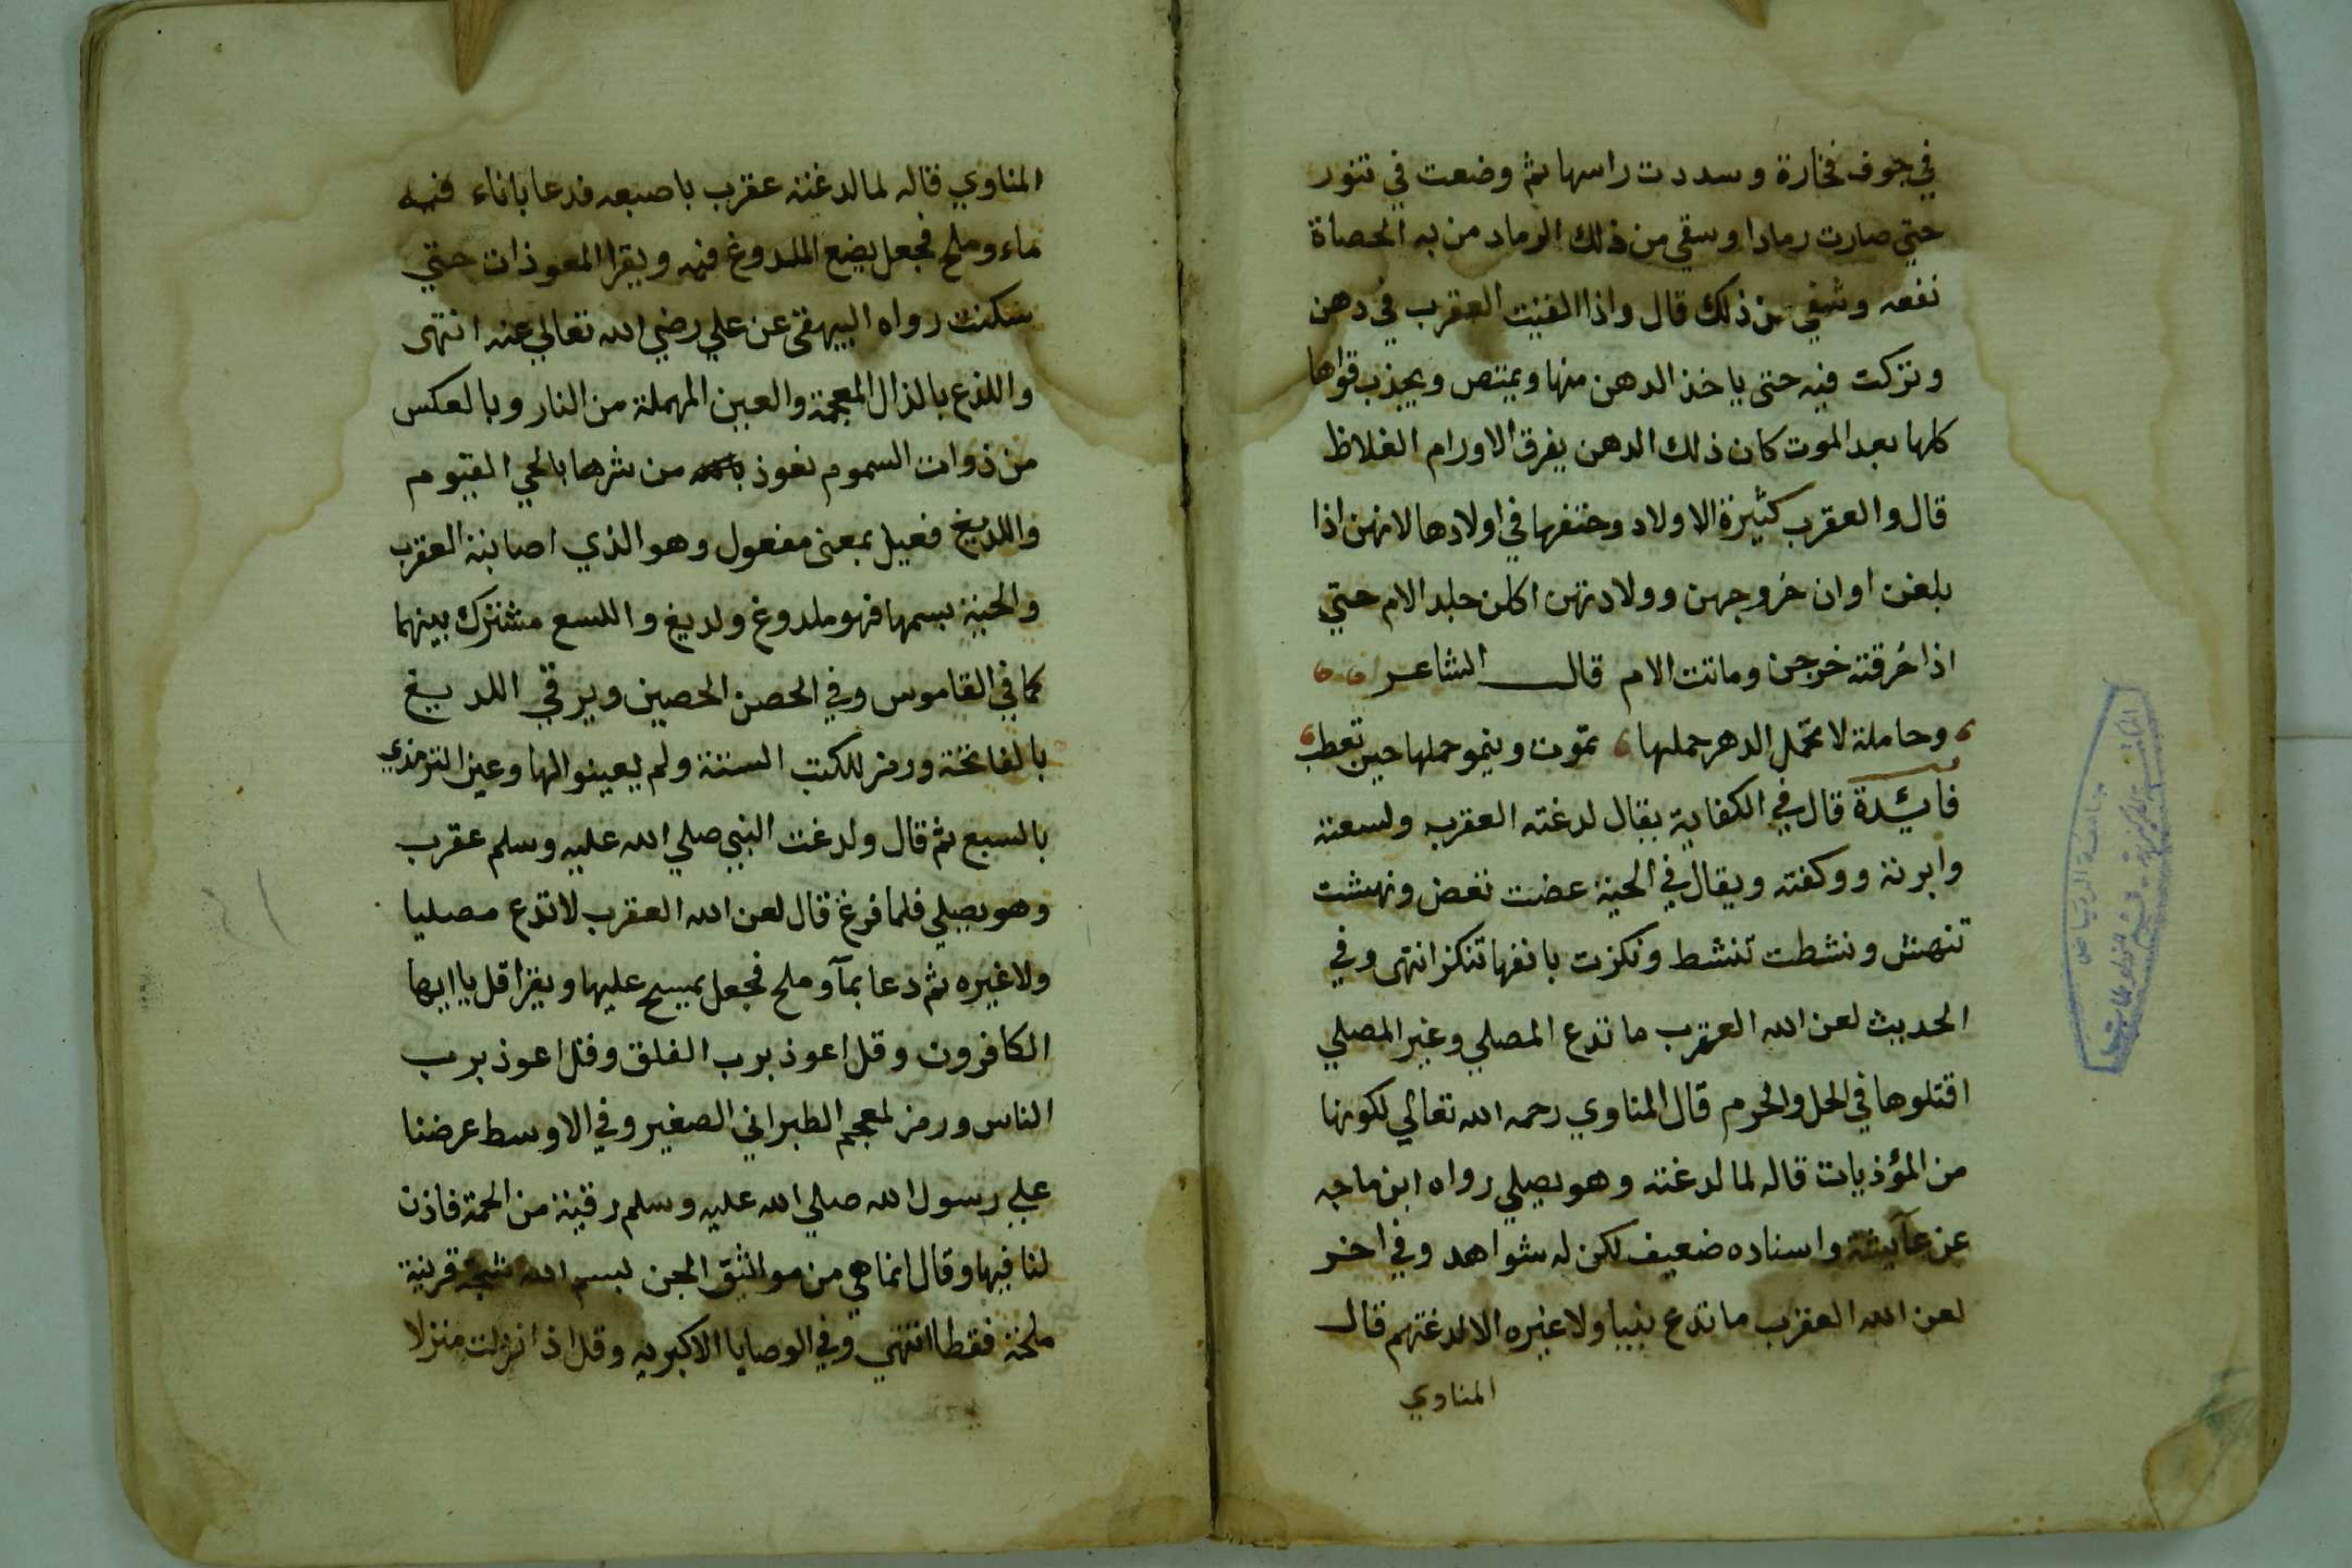 في جوف فخارة وسددت راسها ثم وضعت في تنور
حتي صارت رمادا وسقي من ذلك الرماد من به الحصاة
نفعه وشفي من ذلك قال واذا القيت العقرب في دهن
وتركت فيه حتى ياخذ الدهن منها ويمتص ويجذب قواها
كلها بعد الموت كان ذلك الدهن يفرق الاورام الغلاظ
قال والعقرب كثيرة الاولاد وحتفها في اولادها لانهن اذا
بلغن اوان خروجهن وولادتهن اكلن جلد الام حتي
اذا خرقنه خرجن وماتت الام قال الشاعر
وحاملة لا يحمل الدهر حملها تموت وينمو حملها حين تعطب
فايدة قال في الكفاية يقال لدغته العقرب ولسعته
وابرته ووكفته ويقال في الحية عضت تعض ونهشت
تنهش ونشطت تنشط ونكزت بانفها تنكز انتهى وفي
الحديث لعن الله العقرب ما تدع المصلي وغير المصلي
اقتلوها في الحل والحرم قال المناوي رحمه الله تعالي لكونها
من المؤذيات قاله لما لدغته وهو يصلي رواه ابن ماجه
عن عآيشة واسناده ضعيف لكن له شواهد وفي اخر
لعن الله العقرب ما تدع نبيا ولا غيره الا لدغتهم قال
المناوي
المناوي قاله لما لدغته عقرب باصبعه فدعا باناء فيه
ماء وملح فجعل يضع الملدوغ فيه ويقرا المعوذات حتي
سكنت رواه البيهقي عن علي رضي الله تعالي عنه انتهى
واللذع بالذال المعجمة والعين المهملة من النار وبالعكس
من ذوات السموم نعوذ من شرها بالحي القيوم
واللديغ فعيل بمعنى مفعول وهو الذي اصابته العقرب
والحية بسمها فهو ملدوغ ولديغ واللسع مشترك بينهما
كما في القاموس وفي الحصن الحصين ويرقي اللديغ
بالفاتحة ورمز للكتب الستة ولم يعينوا لها وعين الترمذي
بالسبع ثم قال ولدغت النبي صلي الله عليه وسلم عقرب
وهو يصلي فلما فرغ قال لعن الله العقرب لا تدع مصليا
ولا غيره ثم دعا بمآ وملح فجعل يمسح عليها ويقرا قل يا ايها
الكافرون وقل اعوذ برب الفلق وقل اعوذ برب
الناس ورمز لمعجم الطبراني الصغير وفي الاوسط عرضنا
علي رسول الله صلي الله عليه وسلم رقية من الحمة فاذن
لنا فيها وقال انما هي من مواثيق الجن بسم الله شجة قرنية
ملحة فقطا انتهي وفي الوصايا الاكبريه وقل اذا نزلت منزلا